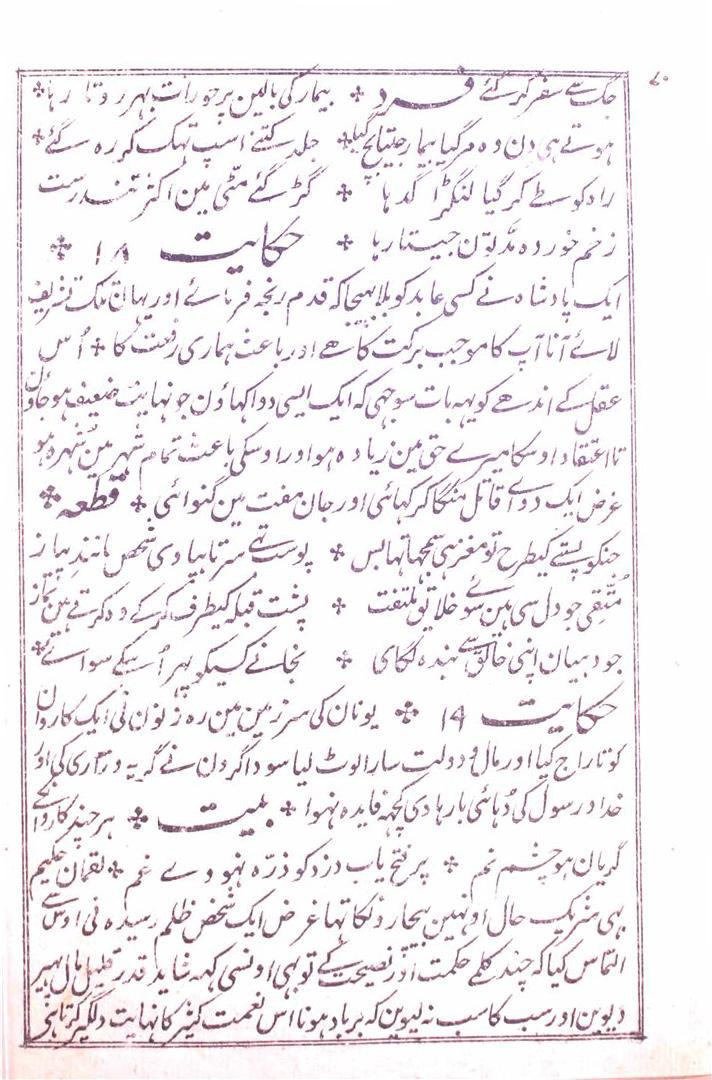 ۸۰
جگ سے سفر کر گئے فرد ❊ بیمار کی بالین پر جو رات بہر روتا رہا ❊
ہوتے ہی دن وہ مر گیا بیمار جیتا بچ گیا ❊ جلد کتنے اسپ تہک کر رہ گئے ❊
راہ کو طے کر گیا لنگڑا گدہا ❊ گڑ گئے مٹی مین اکثر تندرست
زخم خوردہ مدتون جیتا رہا ❊ حکایت ۱۸ ❊
ایک پادشاہ نے کسی عابد کو بلا بہیجا کہ قدم رنجہ فرمائے اور یہان تلک تشریف
لائے آنا آپ کا موجب برکت کا ہے اور باعث ہماری رفعت کا ❊ اُس
عقل کے اندھے کو یہہ بات سوجہی کہ ایک ایسی دوا کہاؤن جو نہایت ضعیف ہو جاؤن
تا اعتقاد اوسکا میرے حق مین زیادہ ہو اور اوسکی باعث تمام شہر مین شہرہ ہو
غرض ایک دواے قاتل منگا کر کہائی اور جان مفت مین گنوائی ❊ قطعہ ❊
جنکو پستے کیطرح تو مغز ہی سمجہا تہا بس ❊ پوست تہے سرتا بپا وی شخص مانند پیاز
متقی جو دل سی ہین سوئے خلائق ملتفت ❊ پشت قبلہ کیطرف کر کے وہ کرتے ہین نماز
جو دہیان اپنی خالق سے بندہ لگای ❊ نجانے کسیکو پہر اُسکے سواے ❊
حکایت ۱۹ ❊ یونان کی سرزمین مین رہزنون نی ایک کاروان
کو تاراج کیا اور مال و دولت سارا لوٹ لیا سوداگرون نے گریہ و زاری کی اور
خدا و رسول کی دُہائی بارہا دی کچہہ فایدہ نہوا ❊ بیت ❊ ہر چند کاروانکے
گریان ہو چشم نم ❊ پر فتح یاب دزد کو ذرّہ نہووے غم ❊ لقمان حکیم
بہی شریک حال اونہین بیچارونکا تہا غرض ایک شخص ظلم رسیدہ نی اوس سے
التماس کیا کہ چند کلمے حکمت اور نصیحت کے تو بہی اونسی کہہ شاید قدر قلیل مال پہیر
دیوین اور سب کا سب نہ لیوین کہ برباد ہونا اس نعمت کثیر کا نہایت دلگیر کرتا ہی